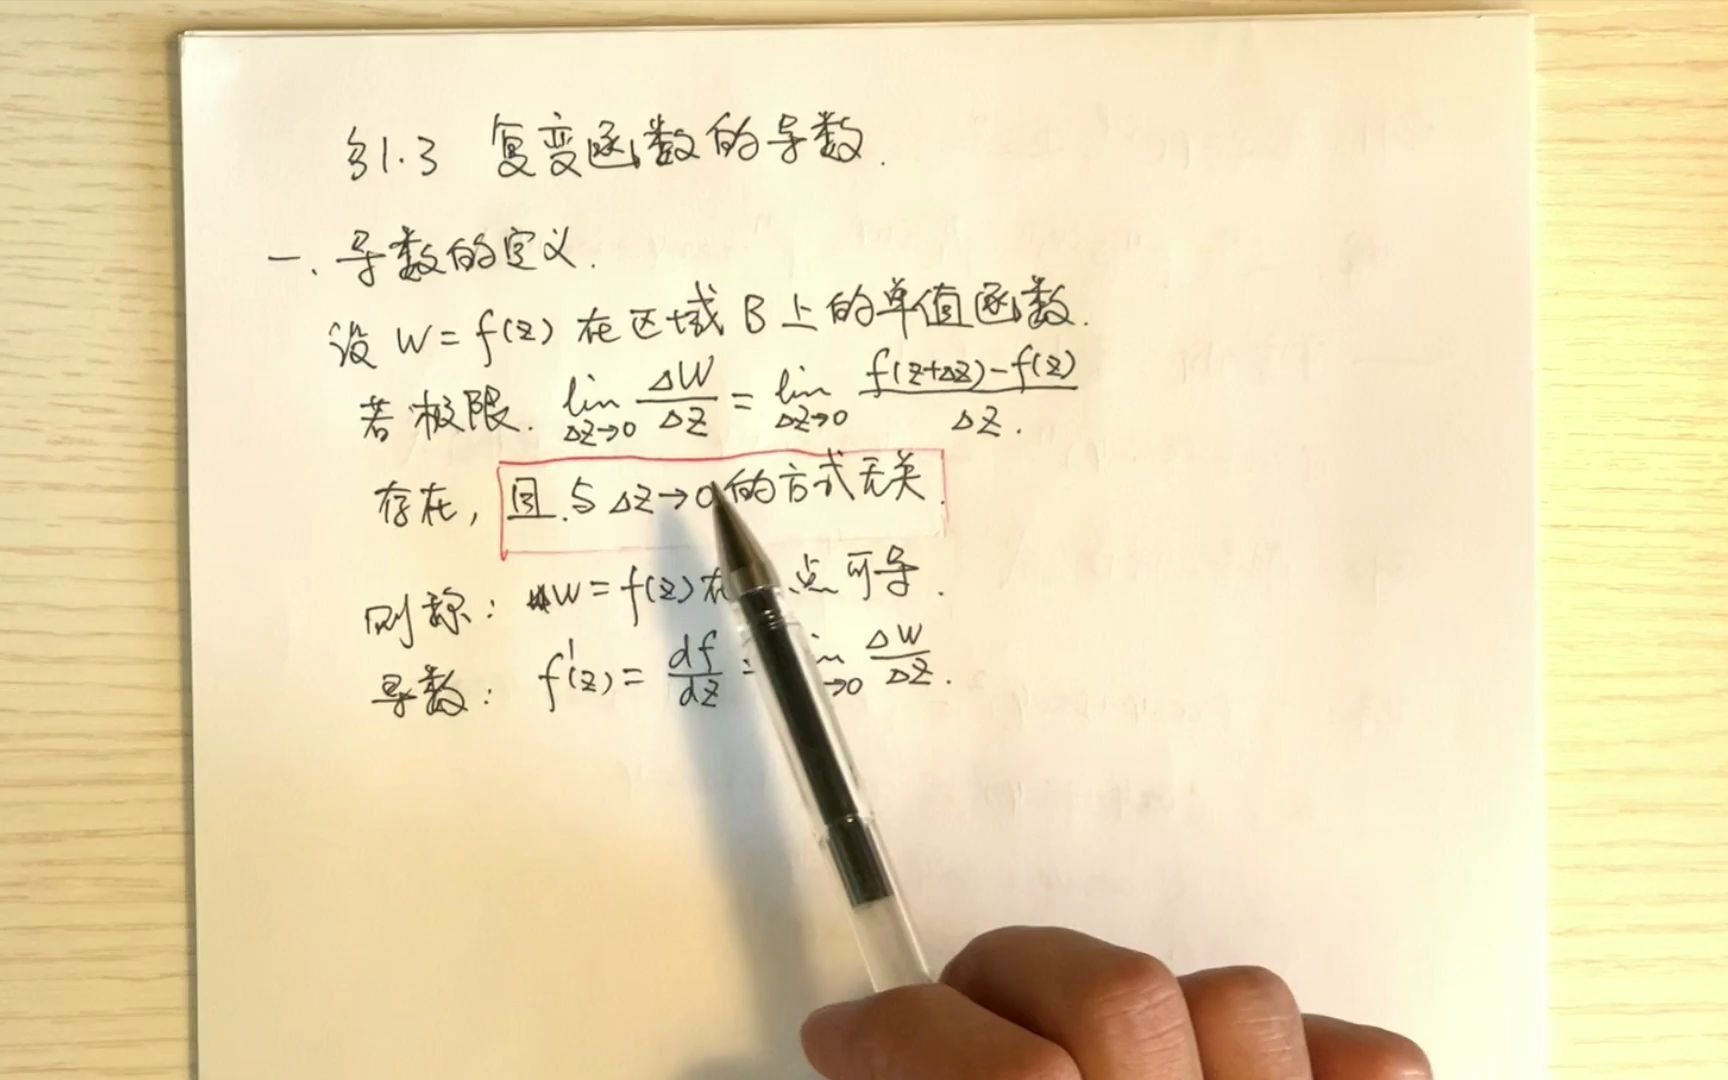 §1.3 复变函数的导数.
一、导数的定义.
设 w = f(z) 在区域 B 上的单值函数.
若极限. lim Δz→0 ΔW/ΔZ = lim Δz→0 (f(z+Δz)-f(z))/ΔZ.
存在, 且.与 ΔZ→0 的方式无关.
则称: w = f(z) 在 点可导.
导数: f'(z) = df/dz = →0 ΔW/ΔZ.